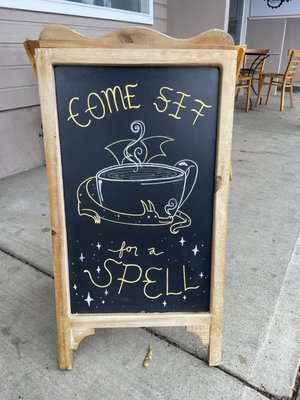 COME SIT
for a
SPELL